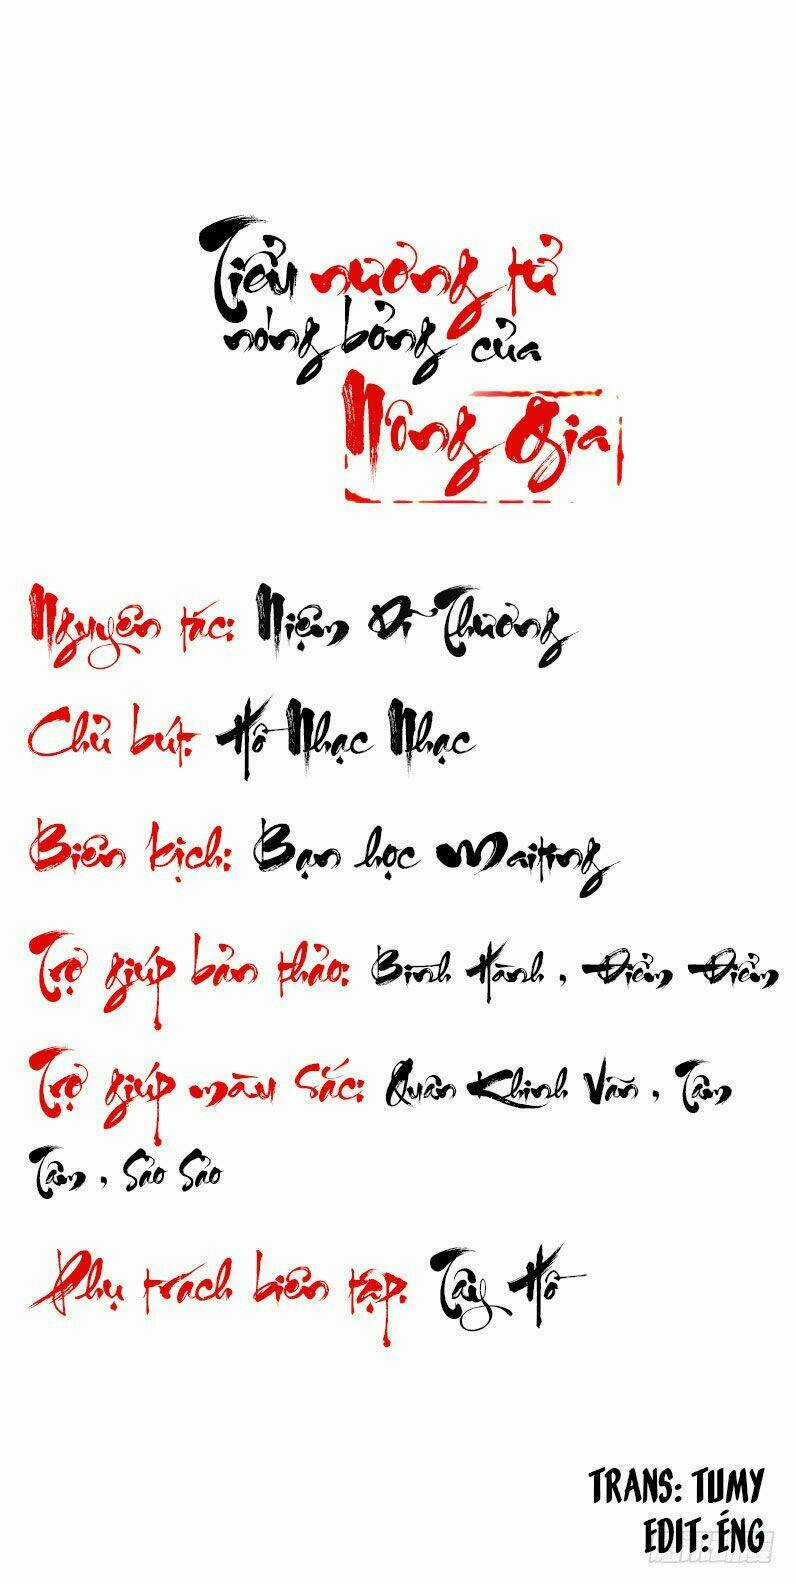 Tiểu nương tử
nóng bỏng của
Nông gia
Nguyên tác: Niệm Dĩ Thương
Chủ bút: Hồ Nhạc Nhạc
Biên kịch: Bạn học Maiting
Trợ giúp bản thảo: Bình Hành , Điểm Điểm
Trợ giúp màu sắc: Quân Khinh Vãn , Tâm
Tâm , Sảo Sảo
Phụ trách biên tập: Tây Hồ
TRANS: TUMY
EDIT: ÉNG